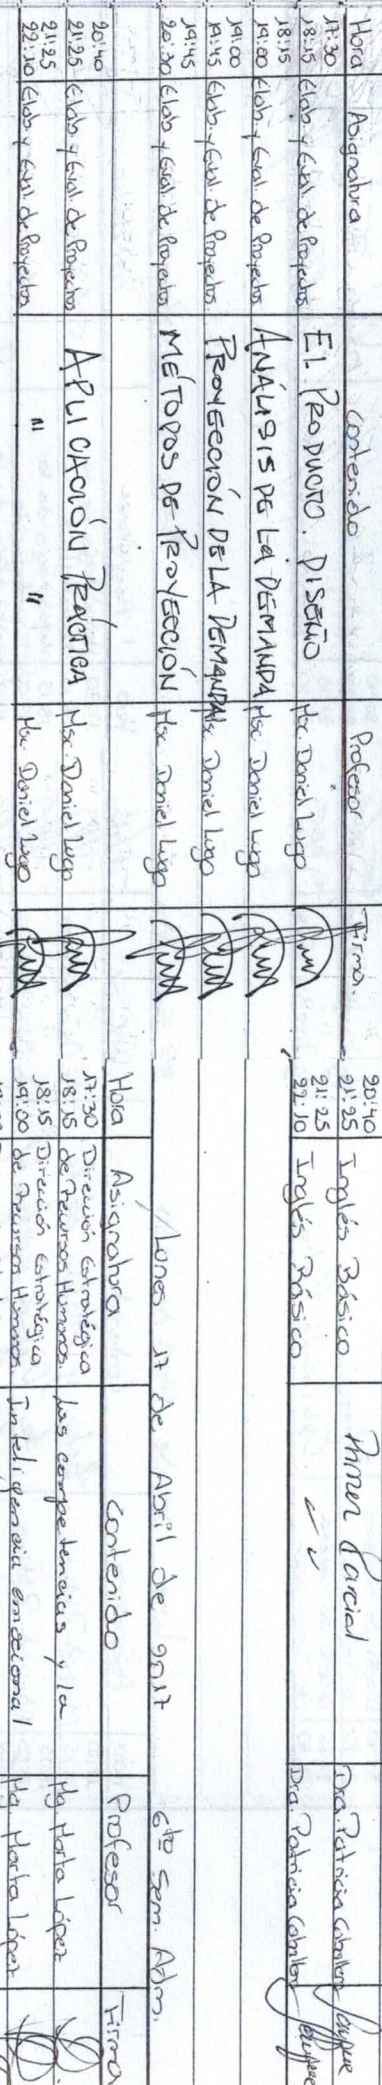 Hora Asignatura Contenido Profesor Firma.
17:30
18:15 Elab. y Eval. de Proyectos EL PRODUCTO. DISEÑO Msc. Daniel Lugo
18:15
19:00 Elab. y Eval. de Proyectos ANÁLISIS DE LA DEMANDA Msc. Daniel Lugo
19:00
19:45 Elab. y Eval. de Proyectos. PROYECCIÓN DE LA DEMANDA Msc. Daniel Lugo
19:45
20:30 Elab. y Eval. de Proyectos MÉTODOS DE PROYECCIÓN Msc. Daniel Lugo
20:40
21:25 Elab. y Eval. de Proyectos APLICACIÓN PRÁCTICA Msc. Daniel Lugo
21:25
22:10 Elab. y Eval. de Proyectos " " Msc. Daniel Lugo
20:40
21:25 Inglés Básico Primer Parcial Dra. Patricia Caballero
21:25
22:10 Inglés Básico Dra. Patricia Caballero
Lunes 17 de Abril de 2017 6to Sem. Adm.
Hora Asignatura Contenido Profesor Firma
17:30 Dirección Estratégica
18:15 de Recursos Humanos. Las competencias y la Mg. Marta López
18:15 Dirección Estratégica
19:00 de Recursos Humanos Inteligencia emocional Mg. Marta López